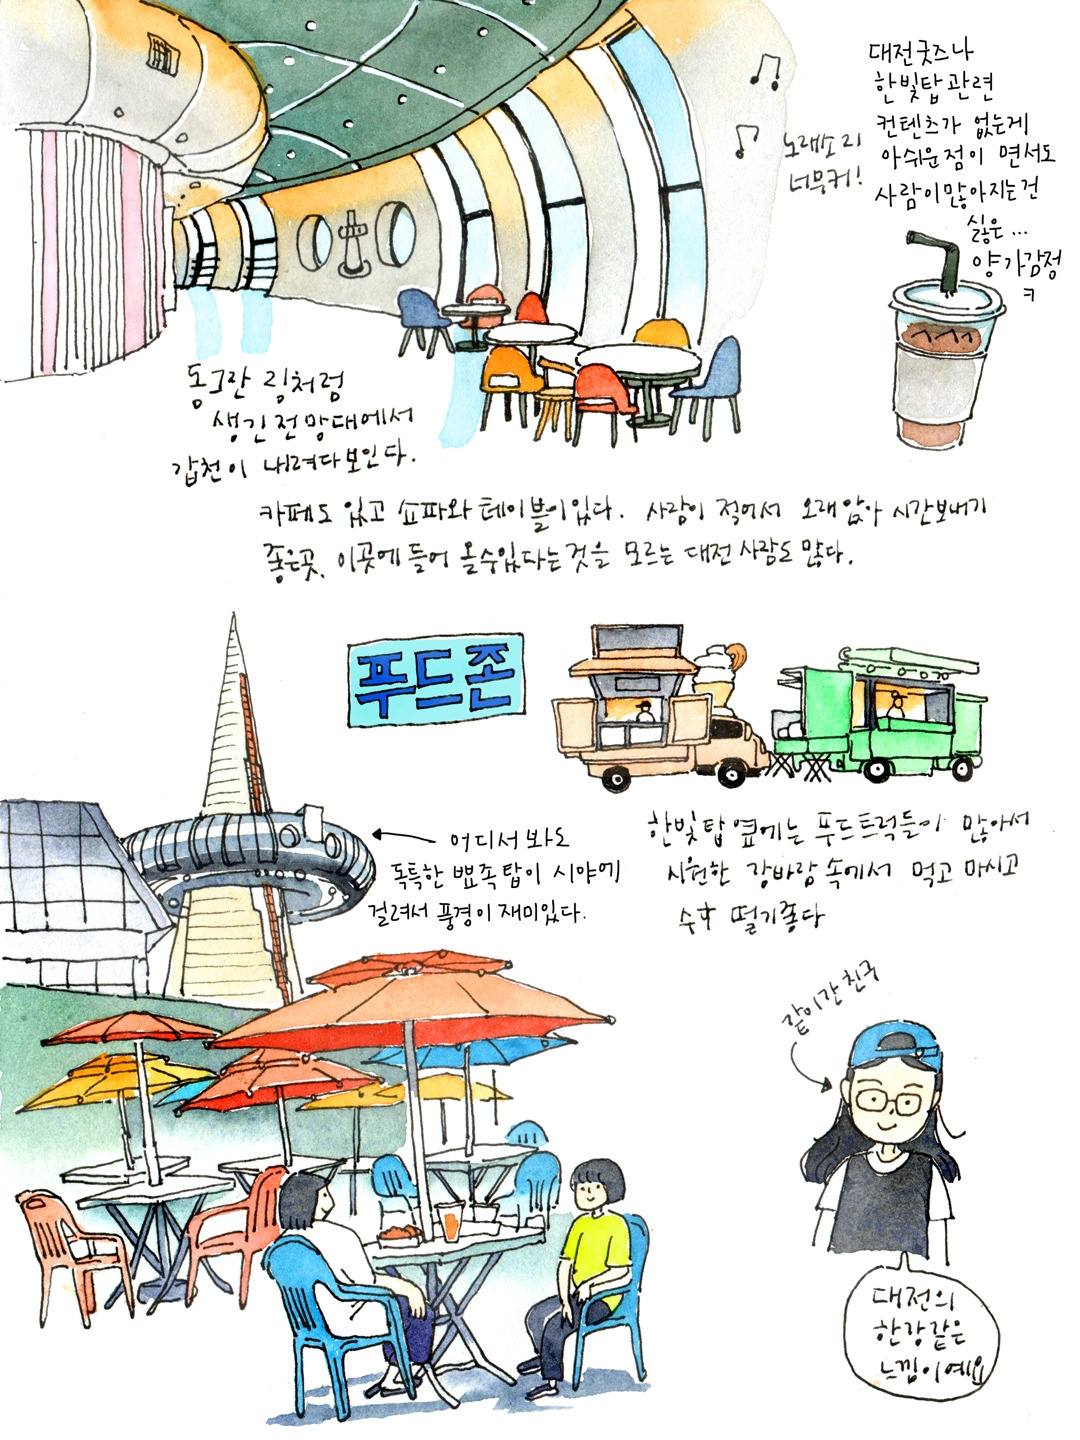 대전굿즈나
한빛탑관련
컨텐츠가 없는게
아쉬운점이 면서도
사람이많아지는건
싫은...
양가감정
ㅋ
노래소리
너무커!
동그란 링처럼
생긴전망대에서
갑천이 내려다보인다.
카페도 있고 쇼파와 테이블이있다. 사람이 적어서 오래앉아 시간보내기
좋은곳. 이곳에들어 올수있다는것을 모르는 대전사람도 많다.
푸드존
어디서 봐도
독특한 뾰족탑이 시야에
걸려서 풍경이 재미있다.
한빛탑옆에는 푸드트럭들이 많아서
시원한 강바람속에서 먹고 마시고
수다 떨기좋다
같이간친구
대전의
한강같은
느낌이예요